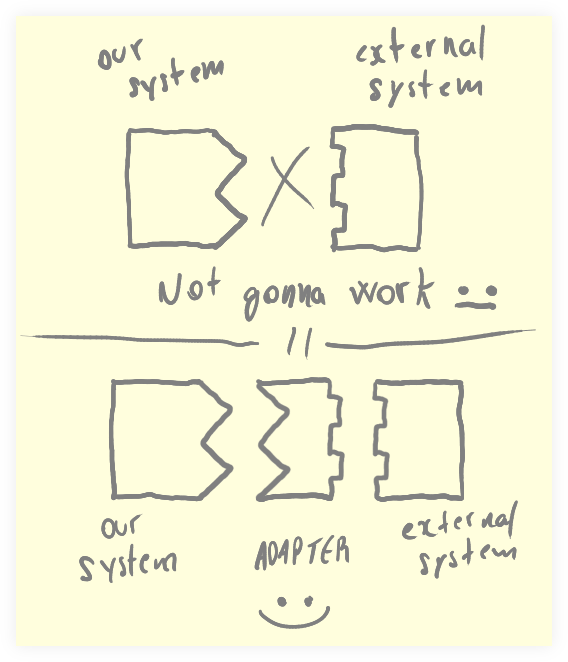 our
system
external
system
Not gonna work
our
system
ADAPTER
external
system